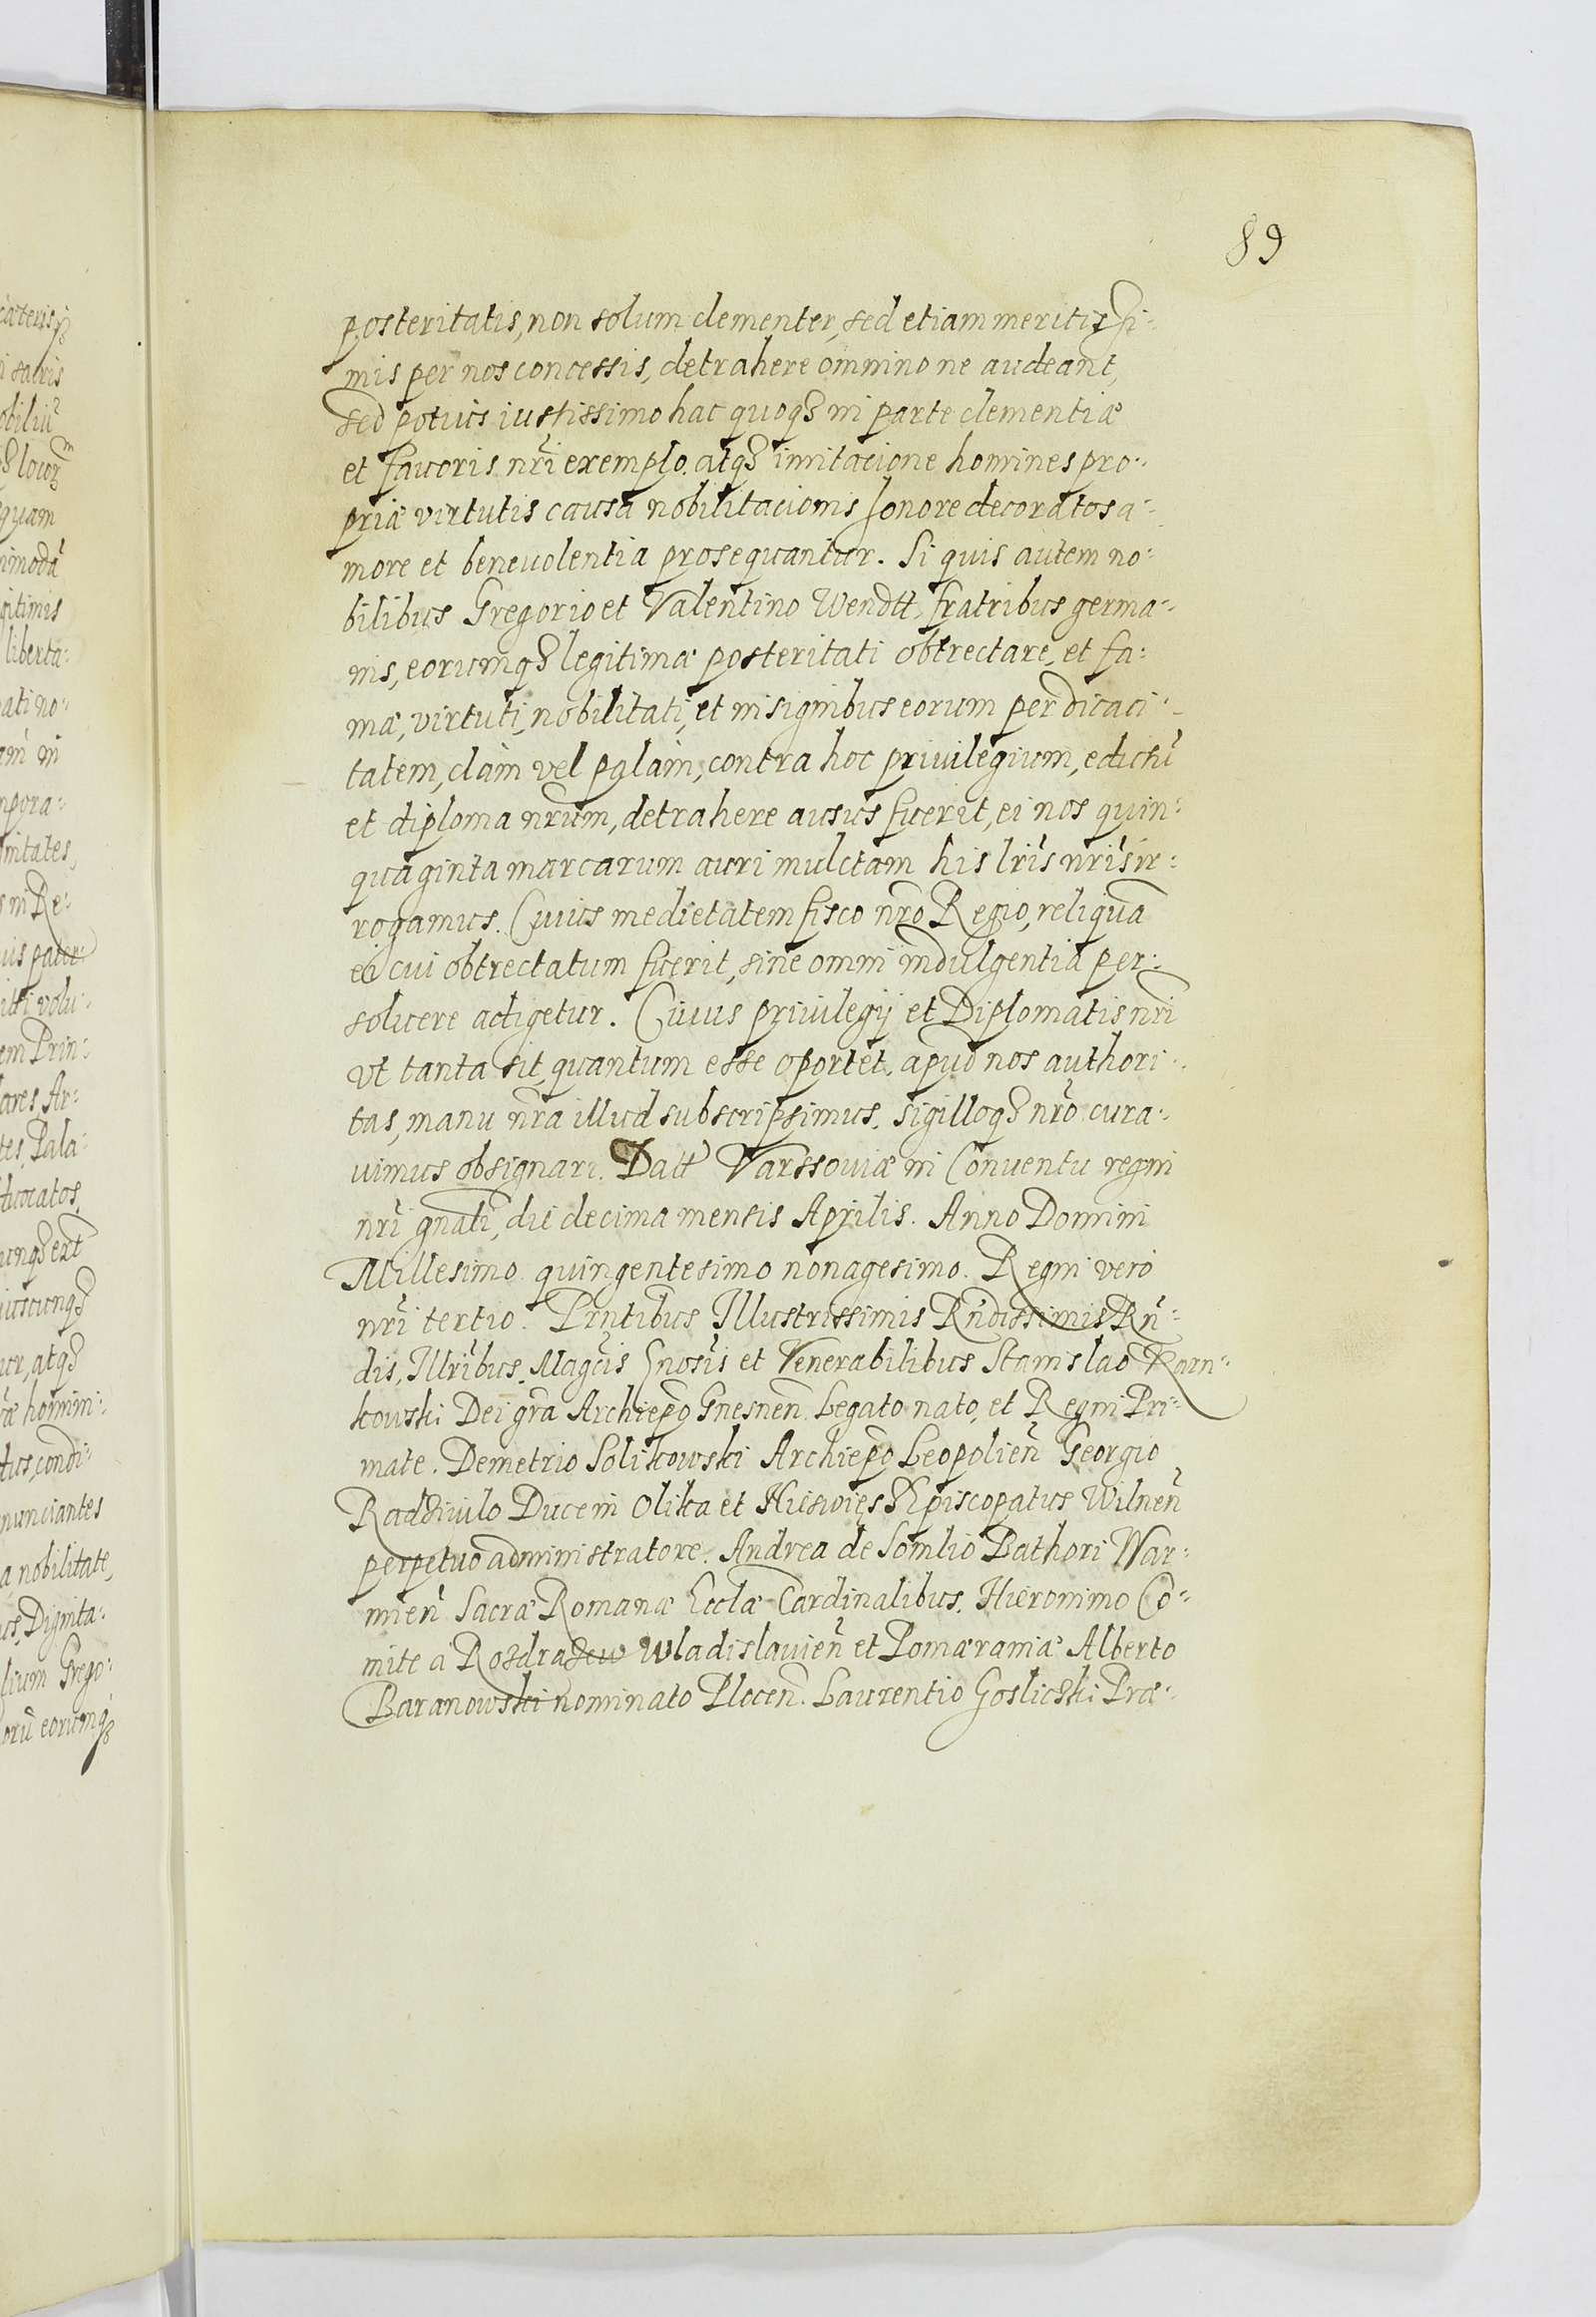 89
posteritatis, non solum clementer, sed etiam meritissi:
mis per nos concessis, detrahere omnino ne audeant,
sed potius iustissimo hac quoqꝫ in parte clementiæ
et fauoris nr̃i exemplo atqꝫ imitacione homines pro:
priæ virtutis causa nobilitacionis honore decoratos a:
more et beneuolentia prosequantur. Si quis autem no:
bilibus Gregorio et Valentino Wendtt fratribus germa:
nis, eorumqꝫ legitimæ posteritati obtrectare, et fa:
mæ, virtuti, nobilitati, et insignibus eorum per dicaci:
tatem, clàm vel palàm, contra hoc priuilegium, edictũ
et diploma nr̃um, detrahere ausus fuerit, ei nos quin:
quaginta marcarum auri mulctam his lr̃is nr̃is ir:
rogamus. Cuius medietatem fisco nr̃o Regio, reliquã
ei cui obtrectatum fuerit, sine omni indulgentia per:
soluere adigetur. Cuius priuilegij et Diplomatis nr̃i
vt tanta sit, quantum esse oportet, apud nos authori:
tas, manu nr̃a illud subscripsimus, sigilloqꝫ nr̃o cura:
uimus obsignari. Datt Varssouiæ in Conuentu regni
nr̃i gñali, die decima mensis Aprilis. Anno Domini
Millesimo quingentesimo nonagesimo. Regni verò
nr̃i tertio. Pñtibus Illustrissimis Rñdissimis Rñ:
dis, Illr̃ibus, Magcis Gnosis et Venerabilibus Stanislao Karn:
kowski Dei gr̃a Archiepõ Gnesneñ Legato nato, et Regni Pri:
mate. Demetrio Solikowski Archiepõ Leopolieñ Georgio
Radziuilo Duce in Olika et Nieswies Episcopatus Wilneñ
perpetuo administratore. Andrea de Somlio Bathori War:
mieñ Sacræ Romanæ Eccl̃æ Cardinalibus. Hieronimo Co:
mite à Rosdrasew Wladislauieñ et Pomæraniæ Alberto
Baranowski nominato Ploceñ. Laurentio Gosliczki Præ: